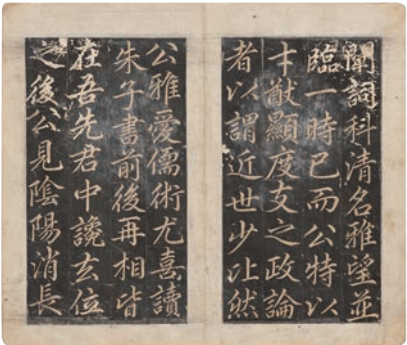 闡詞科清名雅望並
臨一時已而公特以
才猷顯度支之政論
者以謂近世少比然
公雅愛儒術尤喜讀
朱子書前後再相皆
在吾先君中讒去位
之後公見陰陽消長